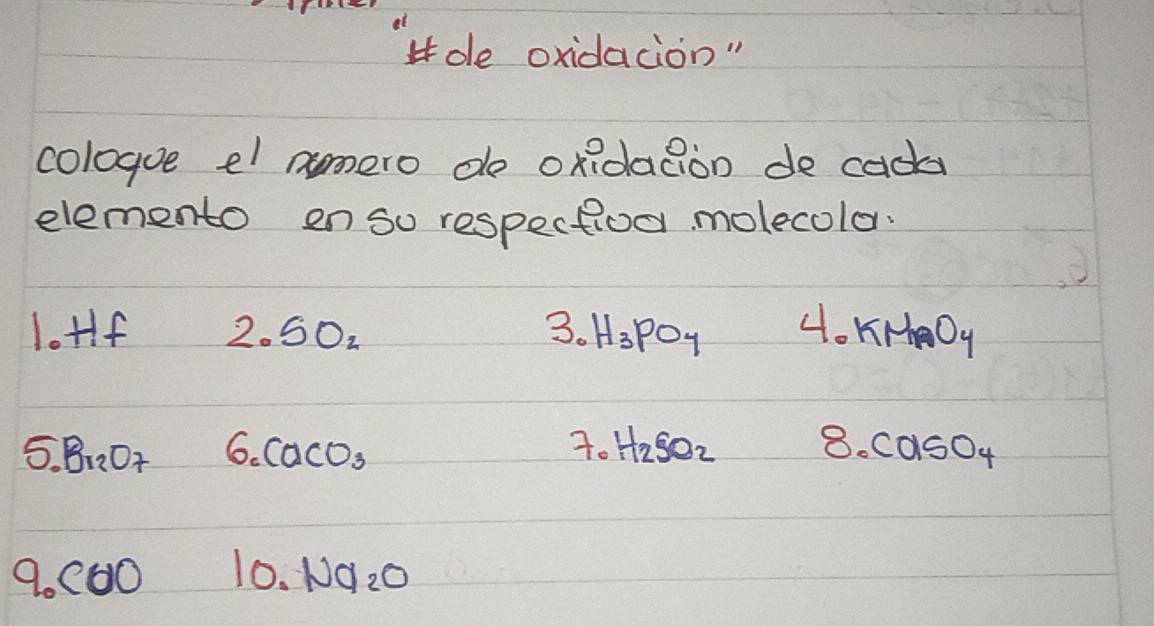 "# de oxidación"
coloque el numero de oxidación de cada
elemento en su respectiva molecula.
1. Hf 2. SO₂ 3. H₃PO₄ 4. KMnO₄
5. Br₂O₇ 6. CaCO₃ 7. H₂SO₂ 8. CaSO₄
9. CuO 10. Na₂O